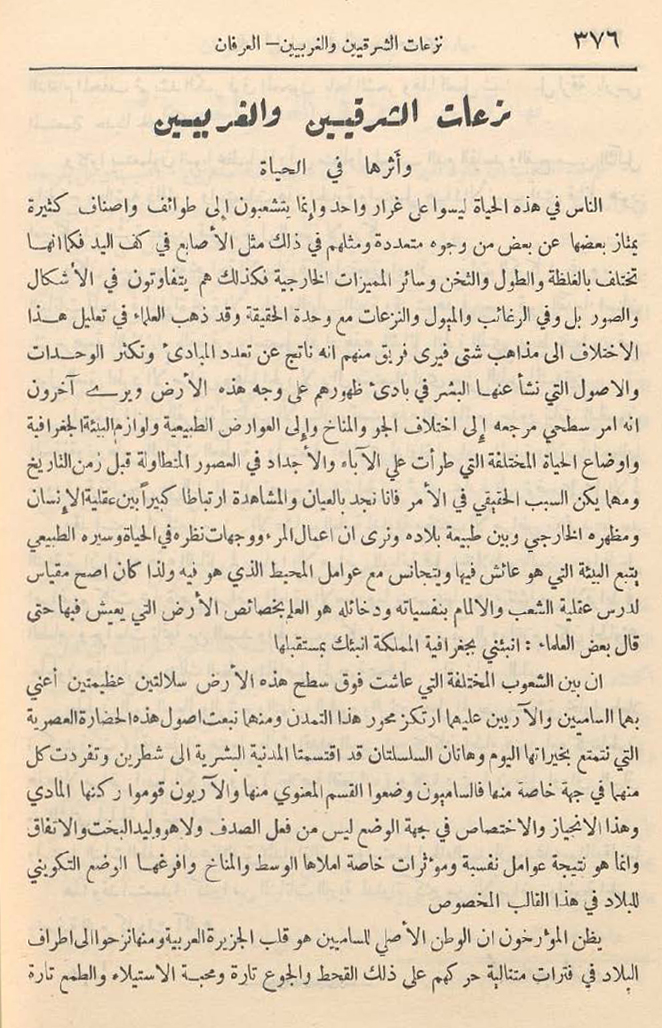 ٣٧٦
نزعات الشرقيين والغربيين – العرفان
نزعات الشرقيين والغربيين
وأثرها في الحياة
الناس في هذه الحياة ليسوا على غرار واحد وإنما يتشعبون إلى طوائف واصناف كثيرة
يمتاز بعضها عن بعض من وجوه متعددة ومثلهم في ذلك مثل الأصابع في كف اليد فكما انها
تختلف بالغلظة والطول والثخن وسائر المميزات الخارجية فكذلك هم يتفاوتون في الأشكال
والصور بل وفي الرغائب والميول والنزعات مع وحدة الحقيقة وقد ذهب العلماء في تعليل هذا
الاختلاف الى مذاهب شتى فيرى فريق منهم انه ناتج عن تعدد المبادئ وتكثر الوحدات
والاصول التي نشأ عنها البشر في بادئ ظهورهم على وجه هذه الأرض ويرى آخرون
انه امر سطحي مرجعه إلى اختلاف الجو والمناخ وإلى العوارض الطبيعية ولوازم البيئة الجغرافية
واوضاع الحياة المختلفة التي طرأت على الآباء والأجداد في العصور المتطاولة قبل زمن التاريخ
ومهما يكن السبب الحقيقي في الأمر فانا نجد بالعيان والمشاهدة ارتباطا كبيراً بين عقلية الإنسان
ومظهره الخارجي وبين طبيعة بلاده ونرى ان اعمال المرء ووجهات نظره في الحياة وسيره الطبيعي
يتبع البيئة التي هو عائش فيها ويتجانس مع عوامل المحيط الذي هو فيه ولذا كان اصح مقياس
لدرس عقلية الشعب والالمام بنفسياته ودخائله هو العلم بخصائص الأرض التي يعيش فيها حتى
قال بعض العلماء : انبئني بجغرافية المملكة انبئك بمستقبلها
ان بين الشعوب المختلفة التي عاشت فوق سطح هذه الأرض سلالتين عظيمتين أعني
بهما الساميين والآريين عليهما ارتكز محور هذا التمدن ومنهما نبعت اصول هذه الحضارة العصرية
التي نتمتع بخيراتها اليوم وهاتان السلسلتان قد اقتسمتا المدنية البشرية الى شطرين وتفردت كل
منهما في جهة خاصة منها فالساميون وضعوا القسم المعنوي منها والآريون قوموا ركنها المادي
وهذا الانحياز والاختصاص في جهة الوضع ليس من فعل الصدف ولا هو وليد البخت والاتفاق
وانما هو نتيجة عوامل نفسية ومؤثرات خاصة املاها الوسط والمناخ وافرغها الوضع التكويني
للبلاد في هذا القالب المخصوص
يظن المؤرخون ان الوطن الأصلي للساميين هو قلب الجزيرة العربية ومنها نزحوا الى اطراف
البلاد في فترات متتالية حركهم على ذلك القحط والجوع تارة ومحبة الاستيلاء والطمع تارة